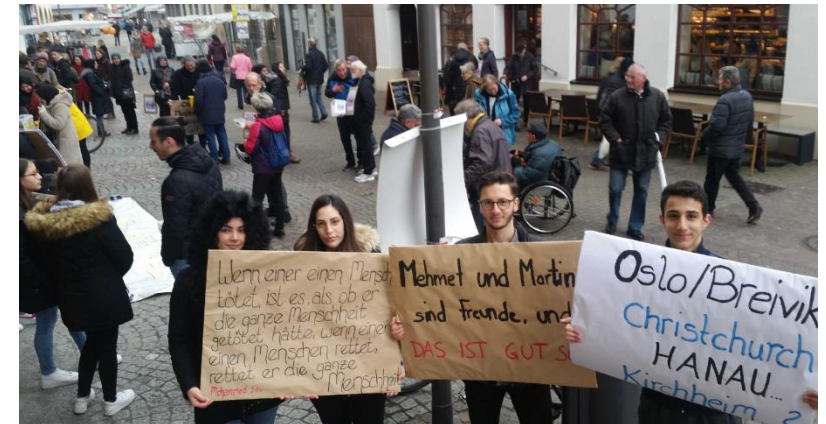 Wenn einer einen Mensch
tötet, ist es, als ob er
die ganze Menschheit
getötet hätte, wenn einer
einen Menschen rettet,
rettet er die ganze
Menschheit
Mohammed
Mehmet und Martin
sind Freunde, und
DAS IST GUT
Oslo/Breivik
Christchurch
HANAU...
Kirchheim ?